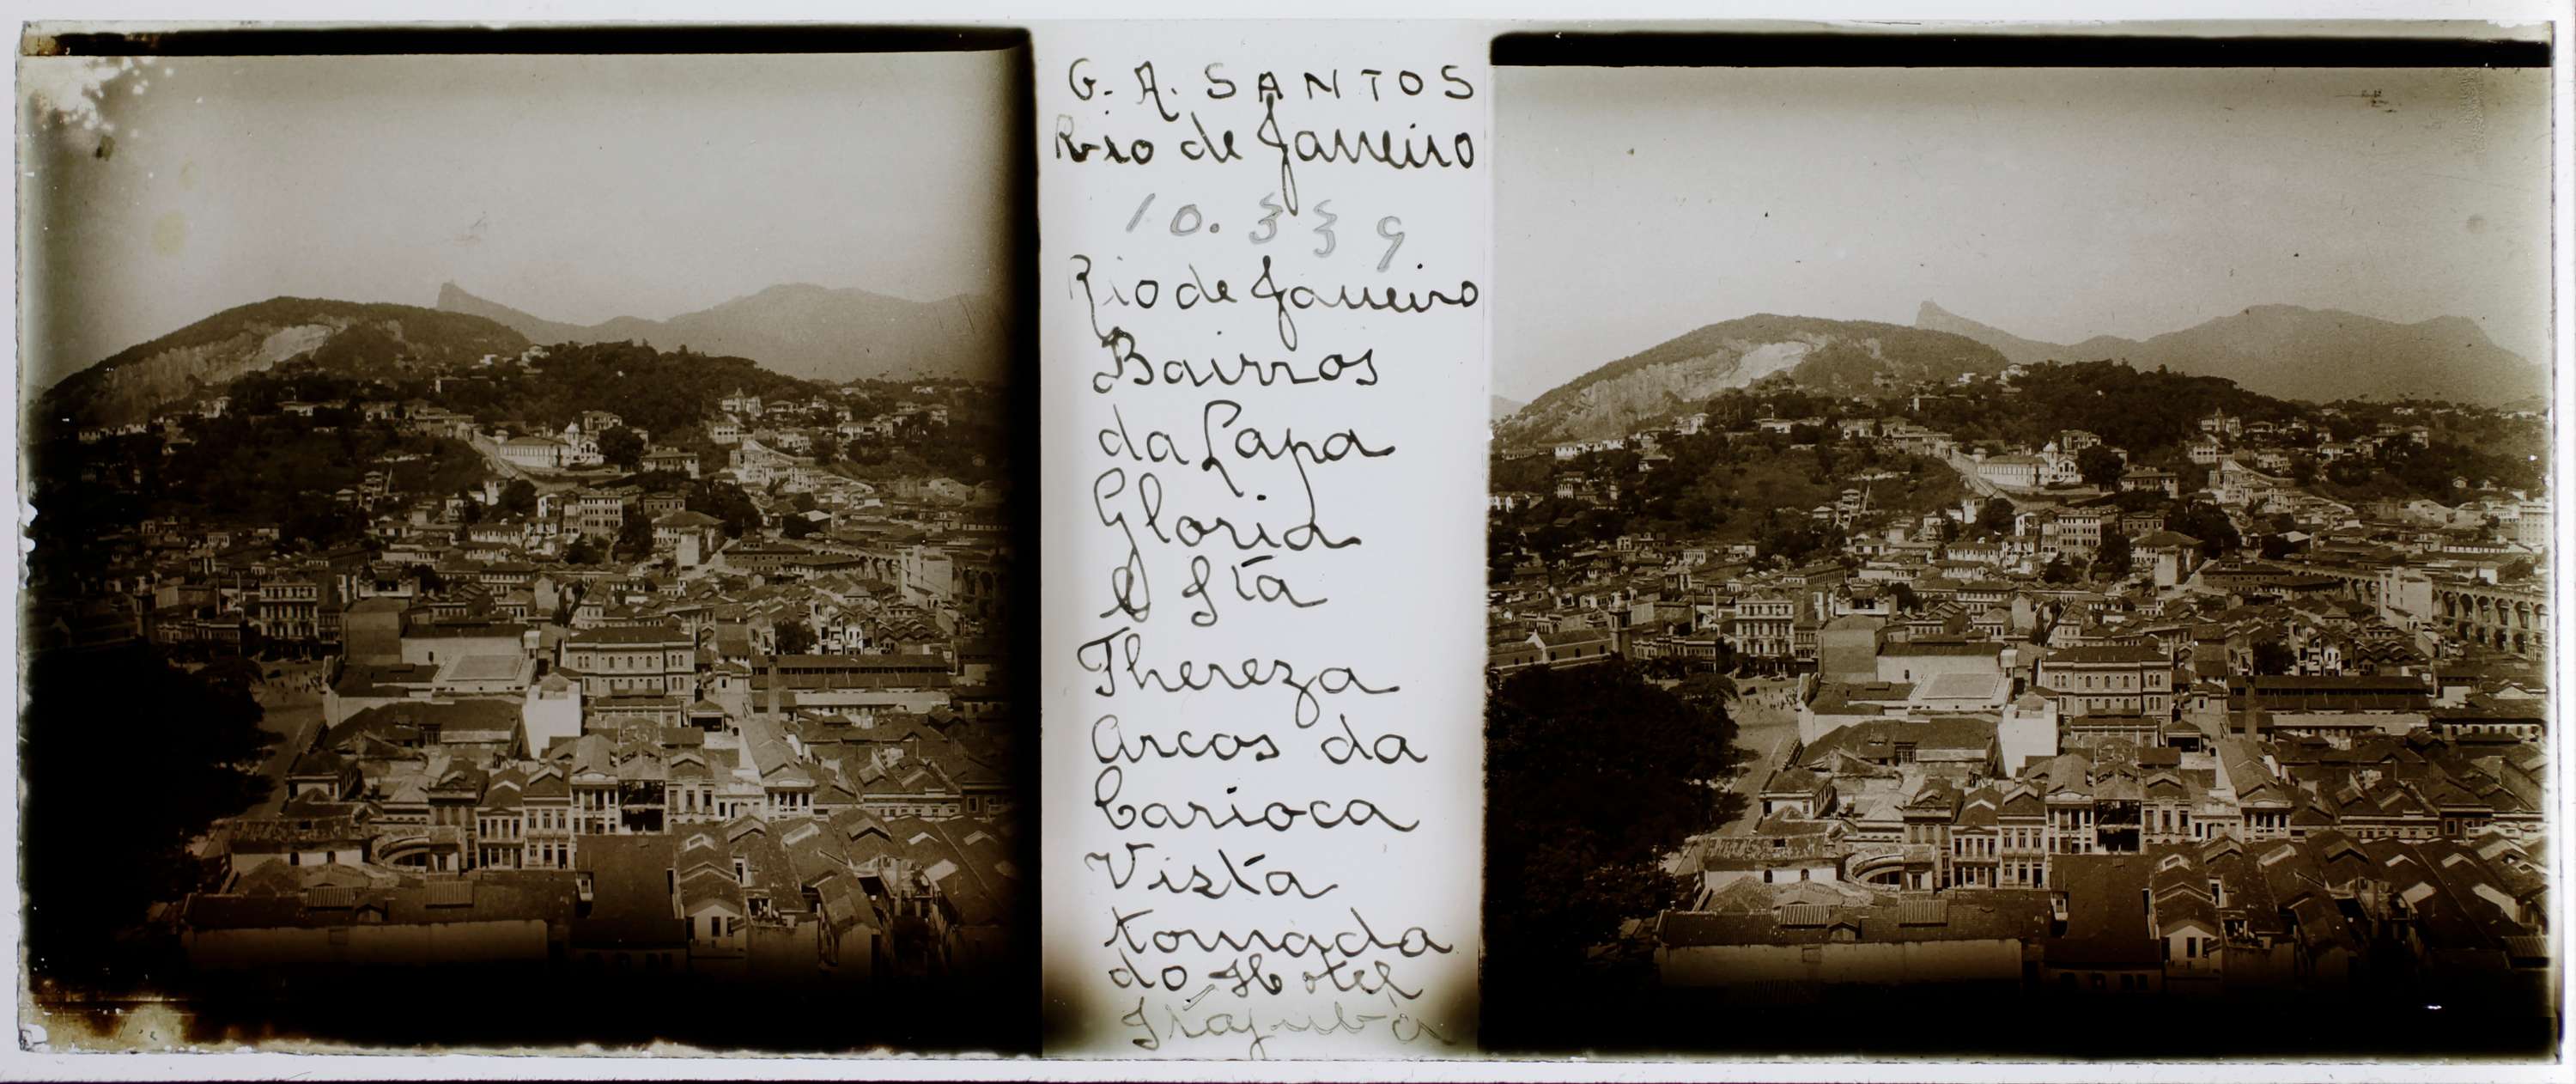 G. A. SANTOS
Rio de Janeiro
10.339
Rio de Janeiro
Bairros
da Lapa
Gloria
e Sta
Thereza
Arcos da
Carioca
Vista
tomada
do Hotel
Itajubá